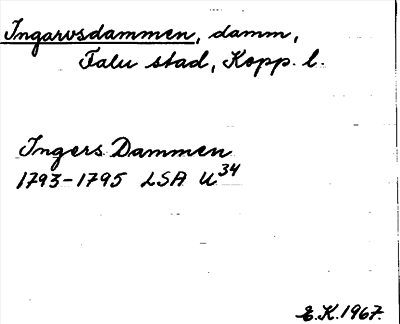 Ingarvsdammen, damm,
Falu stad, Kopp. l.
Ingers Dammen
1793-1795 LSA U34
E.K. 1967.